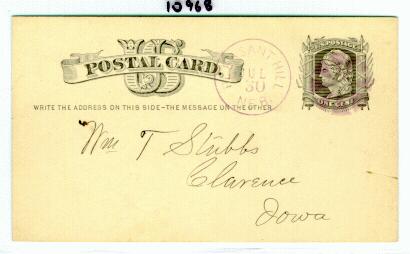 10968
US
POSTAL CARD.
PLEASANT HILL
JUL
30
NEB.
U.S. POSTAGE
ONE CENT
WRITE THE ADDRESS ON THIS SIDE-THE MESSAGE ON THE OTHER
Wm T Stubbs
Clarence
Iowa